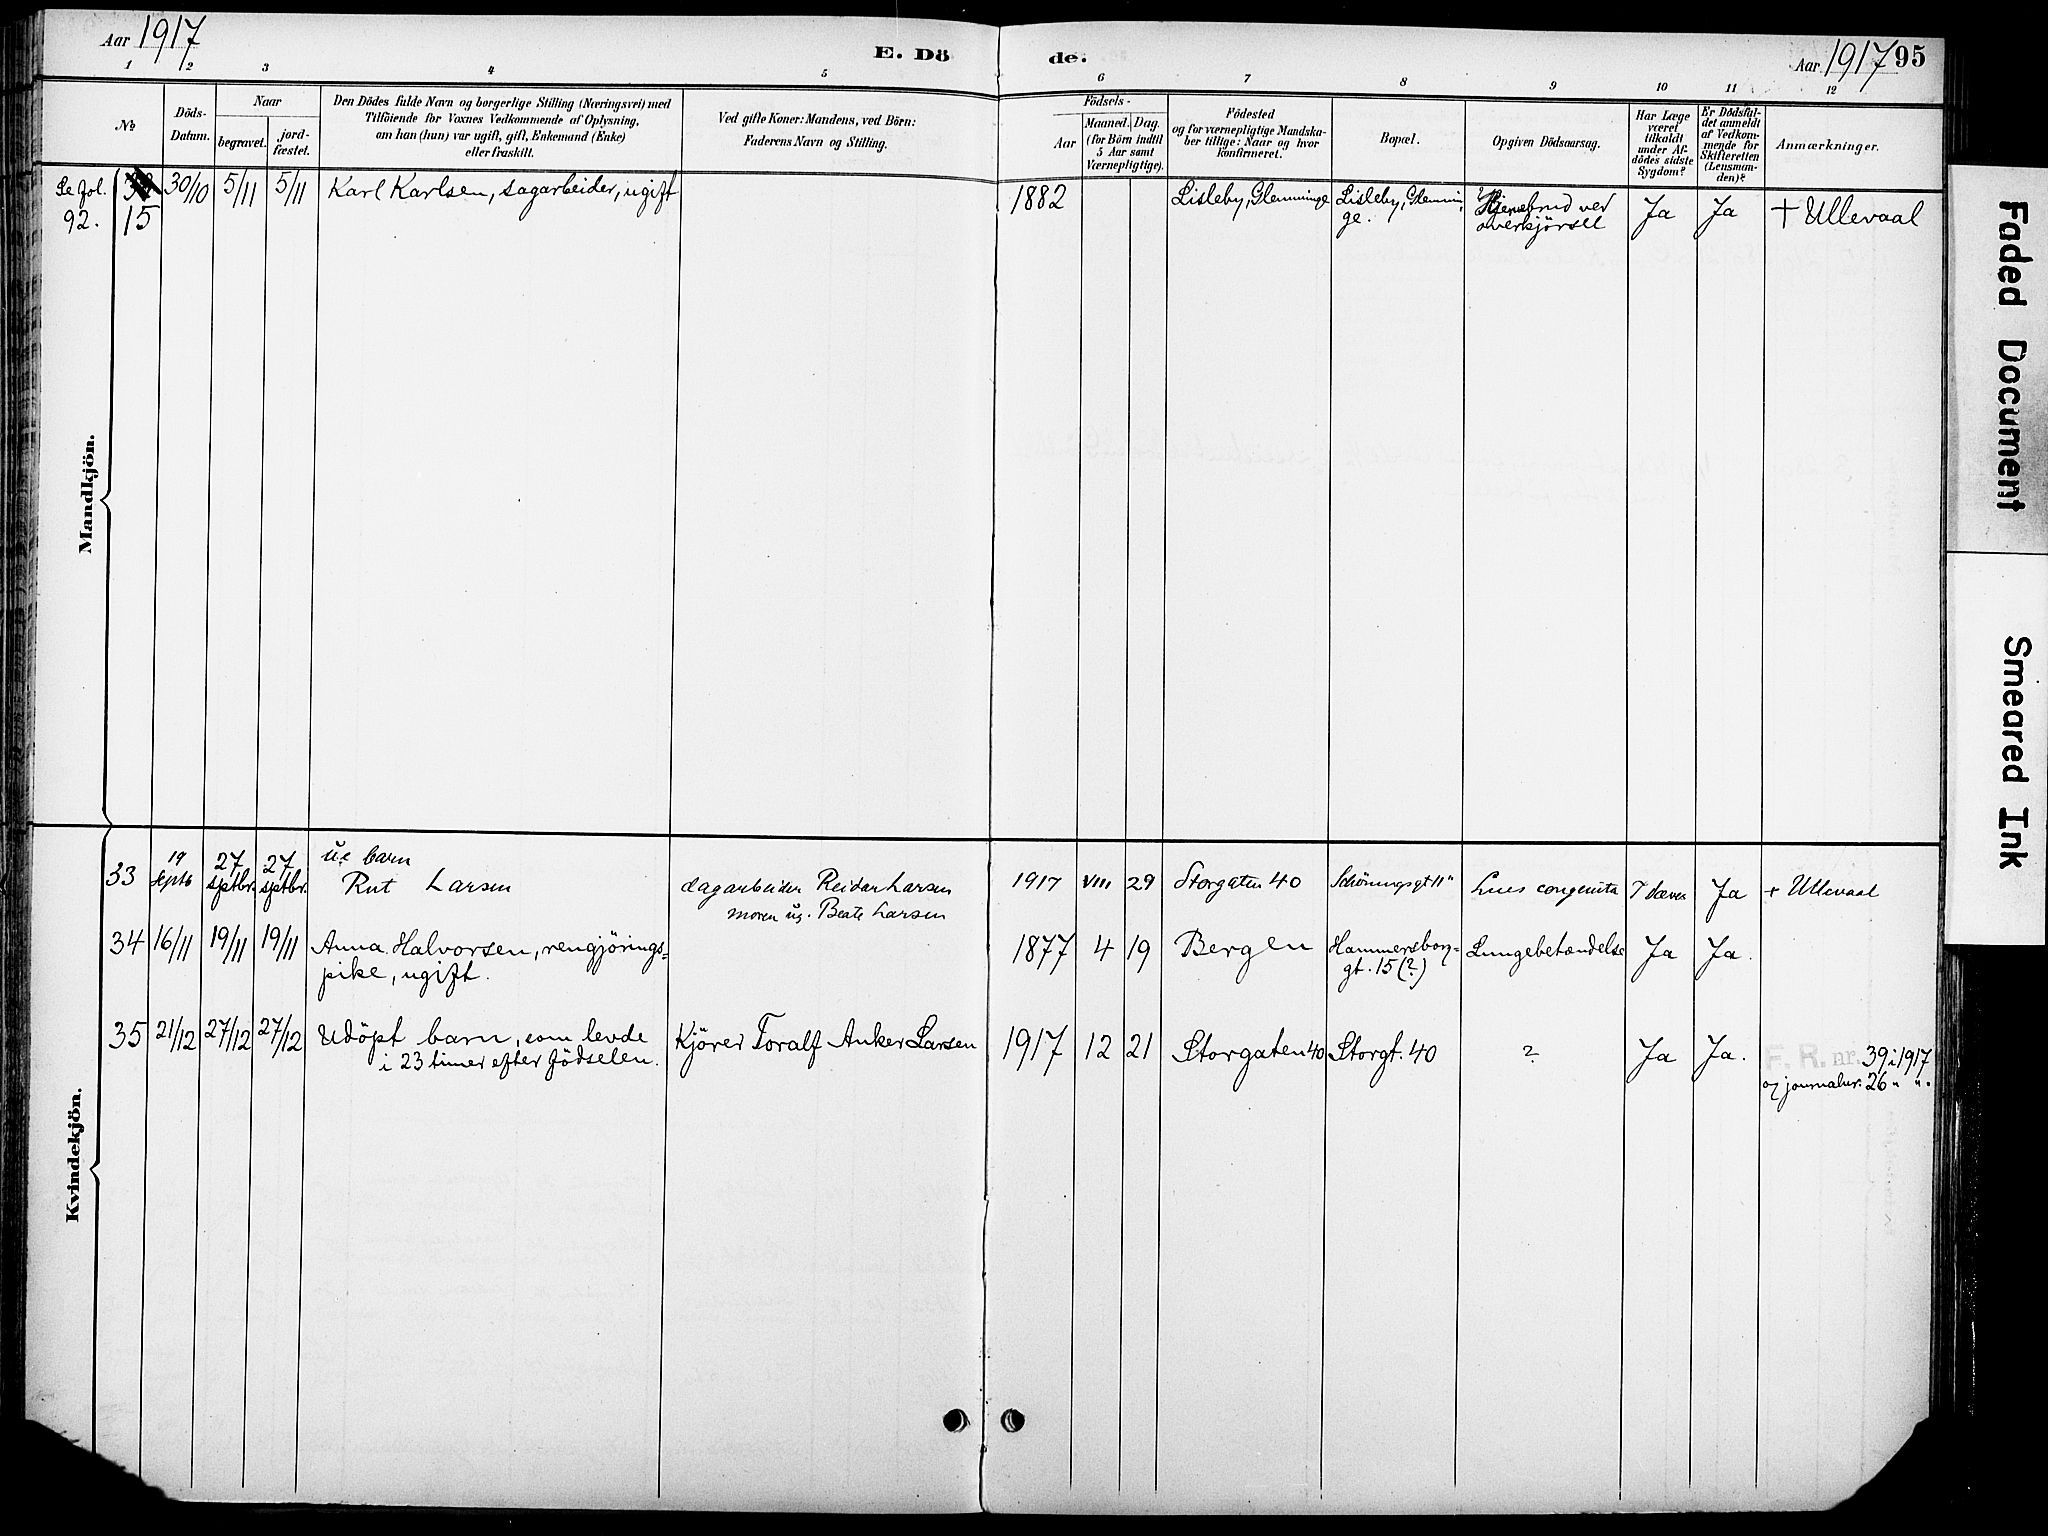 Aar 1917
E. Dö
de.
Aar 1917
95
1 2 3 4 5 6 7 8 9 10 11 12
No
Döds-
Datum.
Naar
begravet.
jord-
fæstet.
Den Dödes fulde Navn og borgerlige Stilling (Næringsvei) med
Tilföiende for Voxnes Vedkommende af Oplysning,
om han (hun) var ugift, gift, Enkemand (Enke)
eller fraskilt.
Ved gifte Koner: Mandens, ved Börn:
Faderens Navn og Stilling.
Födsels-
Aar
Maaned. Dag.
(for Börn indtil
5 Aar samt
Værnepligtige).
Födested
og for værnepligtige Mandska-
ber tillige: Naar og hvor
konfirmeret.
Bopæl.
Opgiven Dödsaarsag.
Har Læge
været
tilkaldt
under Af-
dödes sidste
Sygdom?
Er Dödsfal-
det anmeldt
af Vedkom-
mende for
Skifteretten
(Lensman-
den)?
Anmærkninger.
Mandkjön.
Se fol.
92.
15
30/10 5/11 5/11 Karl Karlsen, sagarbeider, ugift 1882 Lisleby, Glemminge Lisleby, Glemmin-
ge.
ved
overkjørsel
Ja Ja † Ullevaal
Kvindekjön.
33
19
Septb
27
sptbr.
27
sptbr.
ue barn
Rut Larsen
dagarbeider Reidar Larsen
moren ug. Beate Larsen
1917 VIII 29 Storgaten 40 Schøningsgt 11" Lues congenita Ja + Ullevaal
34 16/11 19/11 19/11 Anna Halvorsen, rengjørings=
pike, ugift.
1877 4 19 Bergen Hammersborg=
gt. 15 (?)
Lungebetændelse Ja Ja.
35 21/12 27/12 27/12 Udöpt barn, som levde
i 23 timer efter födselen.
Kjörer Toralf Anker Larsen 1917 12 21 Storgaten 40 Storgt. 40 ? Ja Ja.
F. R. nr. 39 i 1917
og journalnr. 26 " ".
Faded Document
Smeared Ink